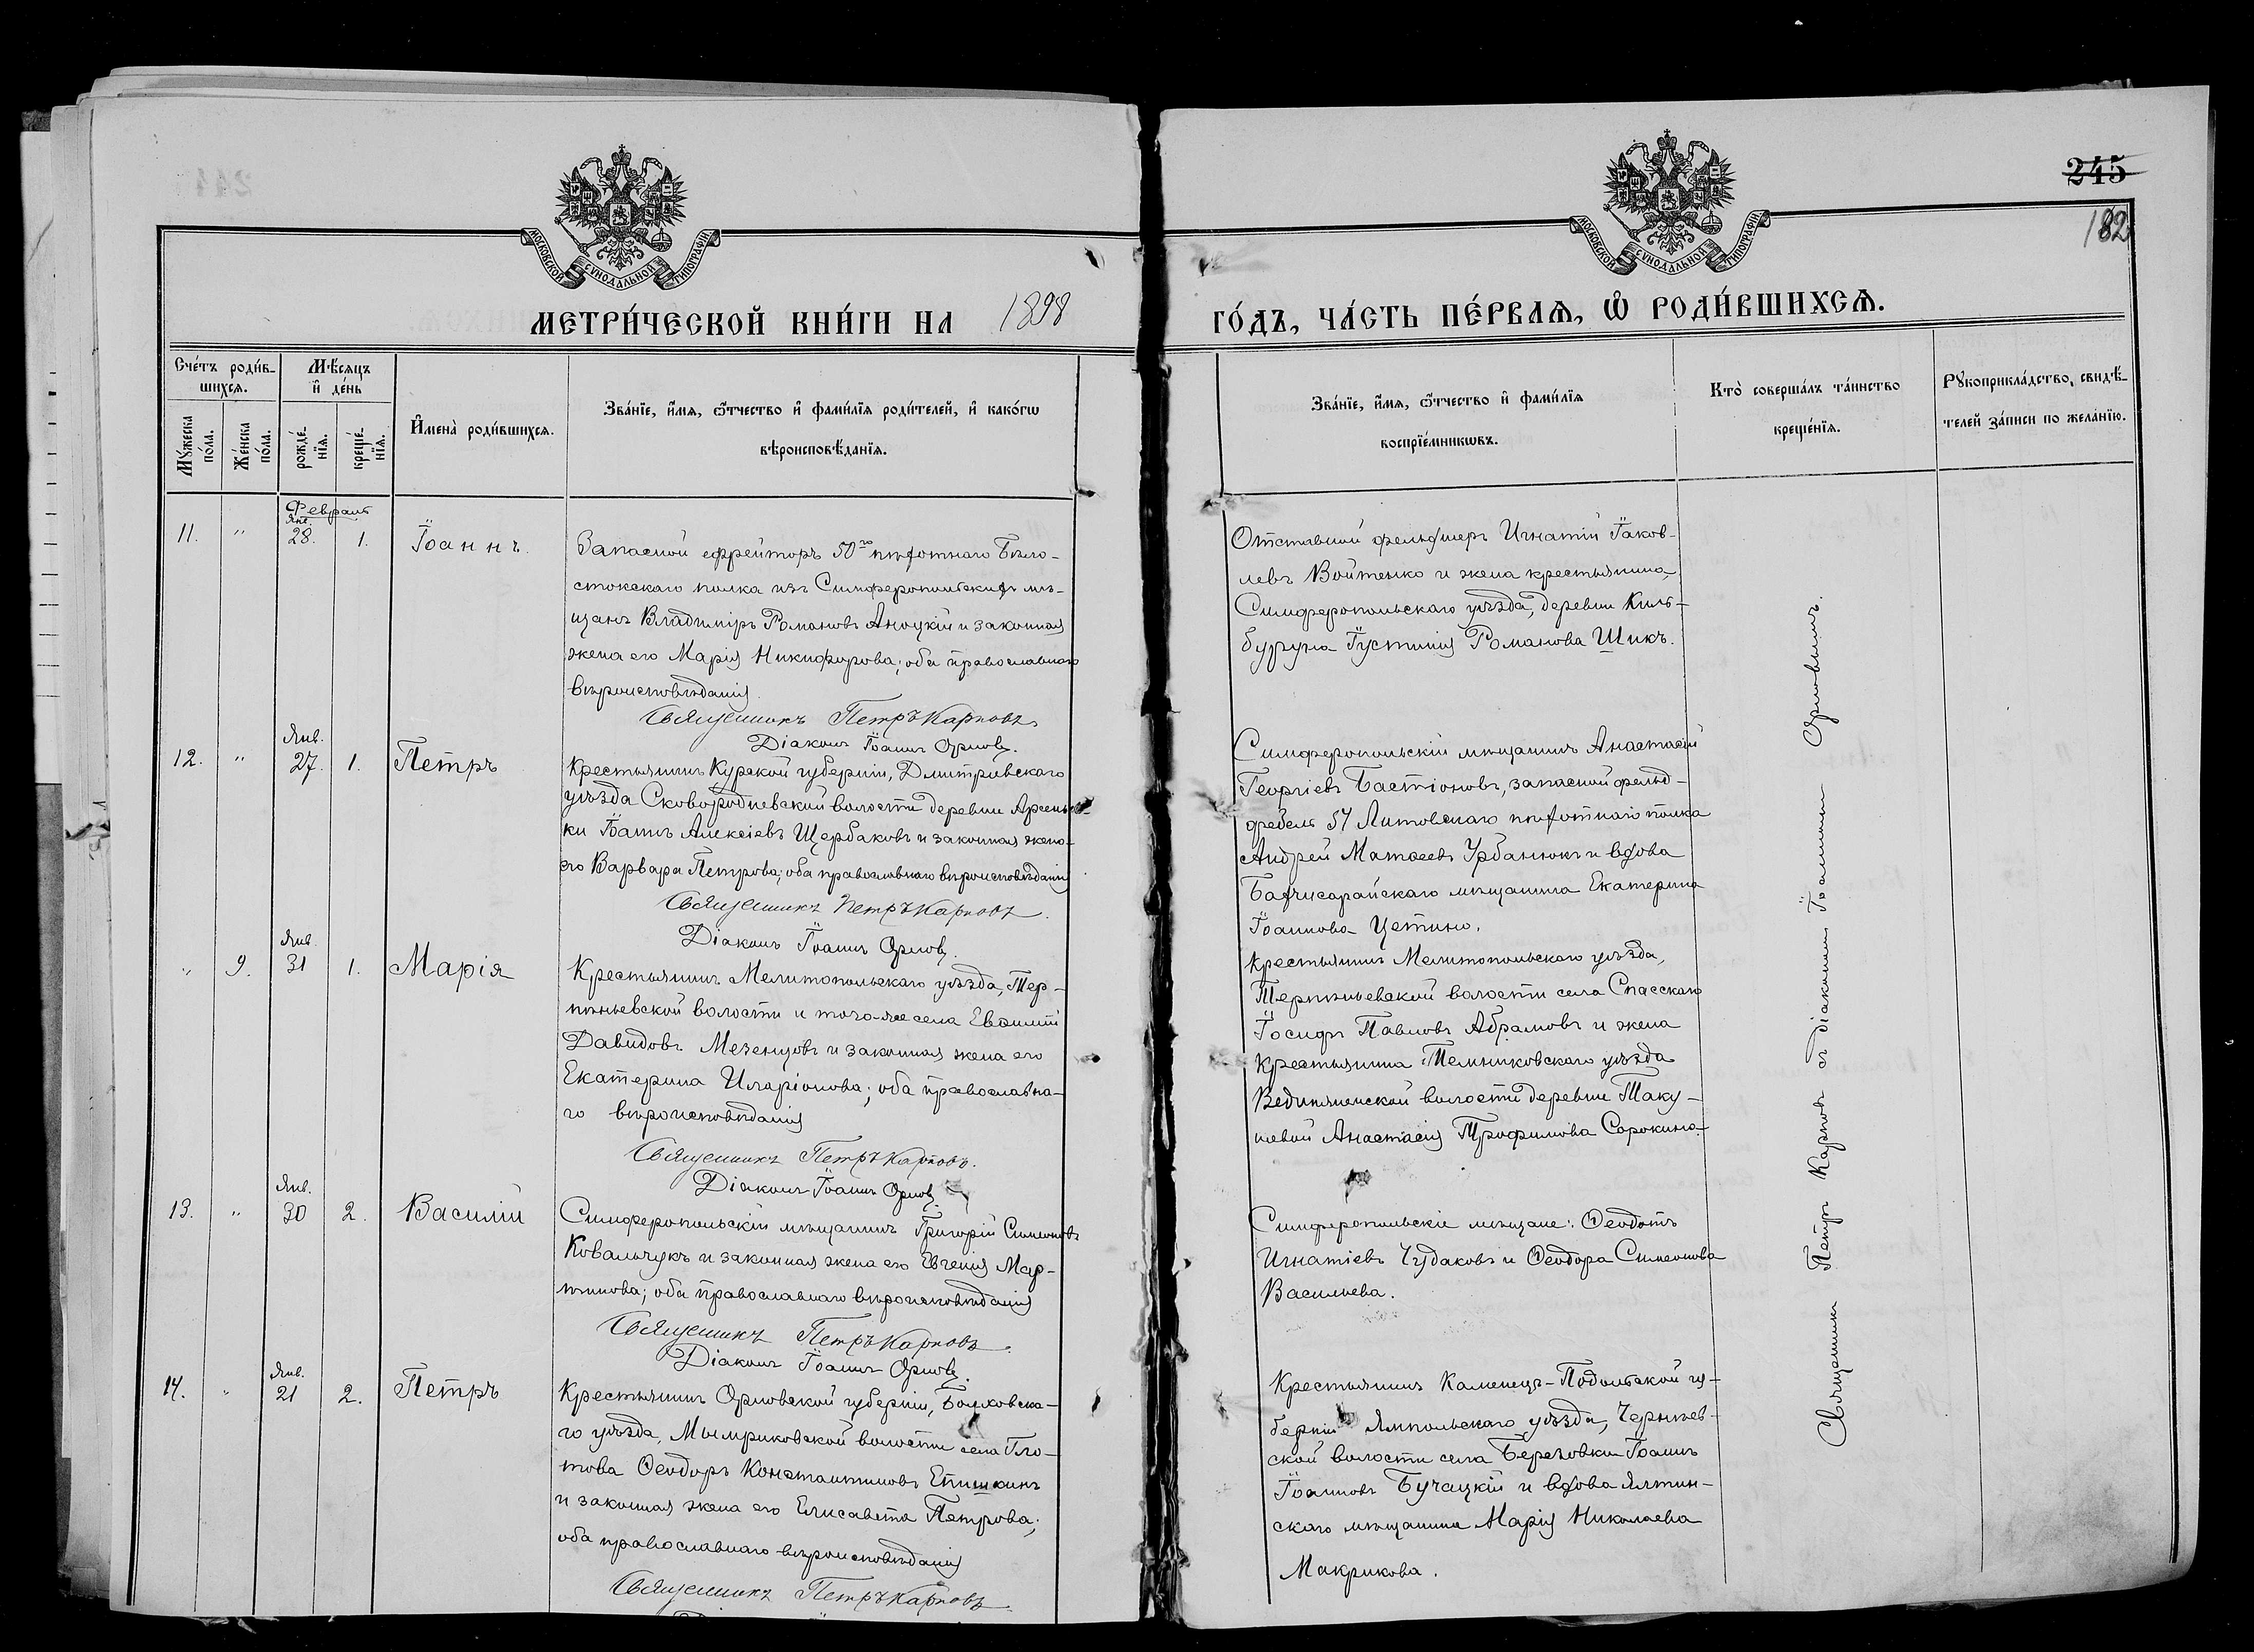 245
182
МОСКОВСКОЙ СѴНОДАЛЬНОЙ ТИПОГРАФІИ
МОСКОВСКОЙ СѴНОДАЛЬНОЙ ТИПОГРАФІИ
МЕТРИ́ЧЕСКОЙ КНИ́ГИ НА 1898
ГО́ДЪ, ЧА́СТЬ ПЕ́РВАѦ, Ѽ РОДИ́ВШИХСѦ.
Сче́тъ роди́в-
шихсѧ.
Мѣ́сѧцъ
и҆ де́нь
Мꙋ́жеска
по́ла.
Же́нска
по́ла.
рожде́-
нїѧ.
креще́-
нїѧ.
И҆мена̀ роди́вшихсѧ.
Зва́нїе, и҆́мѧ, ѻ҆́тчество и҆ фами́лїѧ роди́телей, и҆ како́гѡ
вѣроисповѣ́данїѧ.
Зва́нїе, и҆́мѧ, ѻ҆́тчество и҆ фами́лїѧ
воспрїе́мникѡвъ.
Кто̀ соверша́лъ та́инство
креще́нїѧ.
Рꙋкоприкла́дство, свидѣ́-
телей за́писи по жела́нїю.
Февраль
11. " Янв. 28. 1. Іоаннъ.
Запасной ефрейторъ 50го пѣхотнаго Бѣло-
стокскаго полка изъ Симферопольскихъ мѣ-
щанъ Владиміръ Романовъ Аноцкій и законная
жена его Марія Никифорова; оба православнаго
вѣроисповѣданія.
Священникъ Петръ Карповъ
Діаконъ Іоаннъ Орловъ.
Отставной фельдшеръ Игнатій Іаков-
левъ Войтенко и жена крестьянина,
Симферопольскаго уѣзда, деревни Киль-
буруна Іустинія Романова Шикъ.
12. " Янв. 27. 1. Петръ
Крестьянинъ Курской губерніи, Дмитріевскаго
уѣзда Сковородневской волости деревни Арсеньев-
ки Іоаннъ Алексіевъ Щербаковъ и законная жена
его Варвара Петрова; оба православнаго вѣроисповѣданія
Священникъ Петръ Карповъ.
Діаконъ Іоаннъ Орловъ.
Симферопольскій мѣщанинъ Анастасій
Георгіевъ Бастіоновъ, запасной фельд-
фебель 54 Литовскаго пѣхотнаго полка
Андрей Матѳеевъ Урбанюкъ и вдова
Бахчисарайскаго мѣщанина Екатерина
Іоаннова Цетино.
" 9. Янв. 31 1. Марія
Крестьянинъ Мелитопольскаго уѣзда, Тер-
пѣньевской волости и того-же села Евѳимій
Давидовъ Мезенцовъ и законная жена его
Екатерина Иларіонова; оба православна-
го вѣроисповѣданія
Священникъ Петръ Карповъ.
Діаконъ Іоаннъ Орловъ.
Крестьянинъ Мелитопольскаго уѣзда,
Терпѣньевской волости села Спасскаго
Іосифъ Павловъ Абрамовъ и жена
крестьянина Темниковскаго уѣзда
волости деревни Таку-
шевой Анастасія Трофимова Сорокина.
13. " Янв. 30 2. Василій
Симферопольскій мѣщанинъ Григорій Симеоновъ
Ковальчукъ и законная жена его Евгенія Мар-
тинова; оба православнаго вѣроисповѣданія
Священникъ Петръ Карповъ.
Діаконъ Іоаннъ Орловъ.
Симферопольскіе мѣщане: Ѳеодотъ
Игнатіевъ Чудаковъ и Ѳеодора Симеонова
Васильева.
14. " Янв. 21 2. Петръ
Крестьянинъ Орловской губерніи, Болховска-
го уѣзда, Мымриковской волости села Гло-
това Ѳеодоръ Константиновъ Епишкинъ
и законная жена его Елисавета Петрова;
оба православнаго вѣроисповѣданія
Священникъ Петръ Карповъ
Крестьянинъ Каменецъ-Подольской гу-
берніи Ямпольскаго уѣзда, Чернѣев-
ской волости села Березовки Іоаннъ
Іоанновъ Бучацкій и вдова Ялтин-
скаго мѣщанина Марія Николаева
Макрикова.
Священникъ Петръ Карповъ съ діакономъ Іоанномъ Орловымъ.